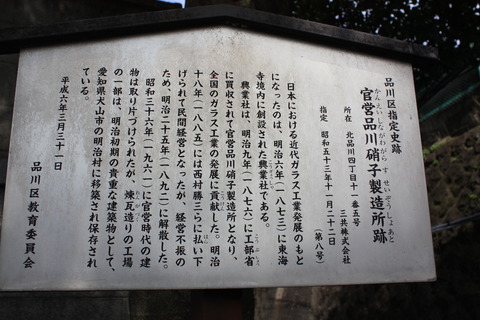 品川区指定史跡
官営品川硝子製造所跡
かんえいしながわがらすせいぞうしょあと
所在 北品川四丁目十一番五号
三共株式会社
指定 昭和五十三年十一月二十二日
（第八号）
日本における近代ガラス工業発展のもと
になったのは、明治六年（一八七三）に東海
寺境内に創設された興業社である。
こうぎょうしゃ
興業社は、明治九年（一八七六）に工部省
こうぶしょう
に買収されて官営品川硝子製造所となり、
全国のガラス工業の発展に貢献した。明治
十八年（一八八五）には西村勝三らに払い下
げられて民間経営となったが、経営不振の
ため、明治二十五年（一八九二）に解散した。
昭和三十六年（一九六一）に官営時代の建
物は取り片づけられたが、煉瓦造りの工場
の一部は、明治初期の貴重な建築物として、
愛知県犬山市の明治村に移築され保存され
ている。
平成六年三月三十一日
品川区教育委員会